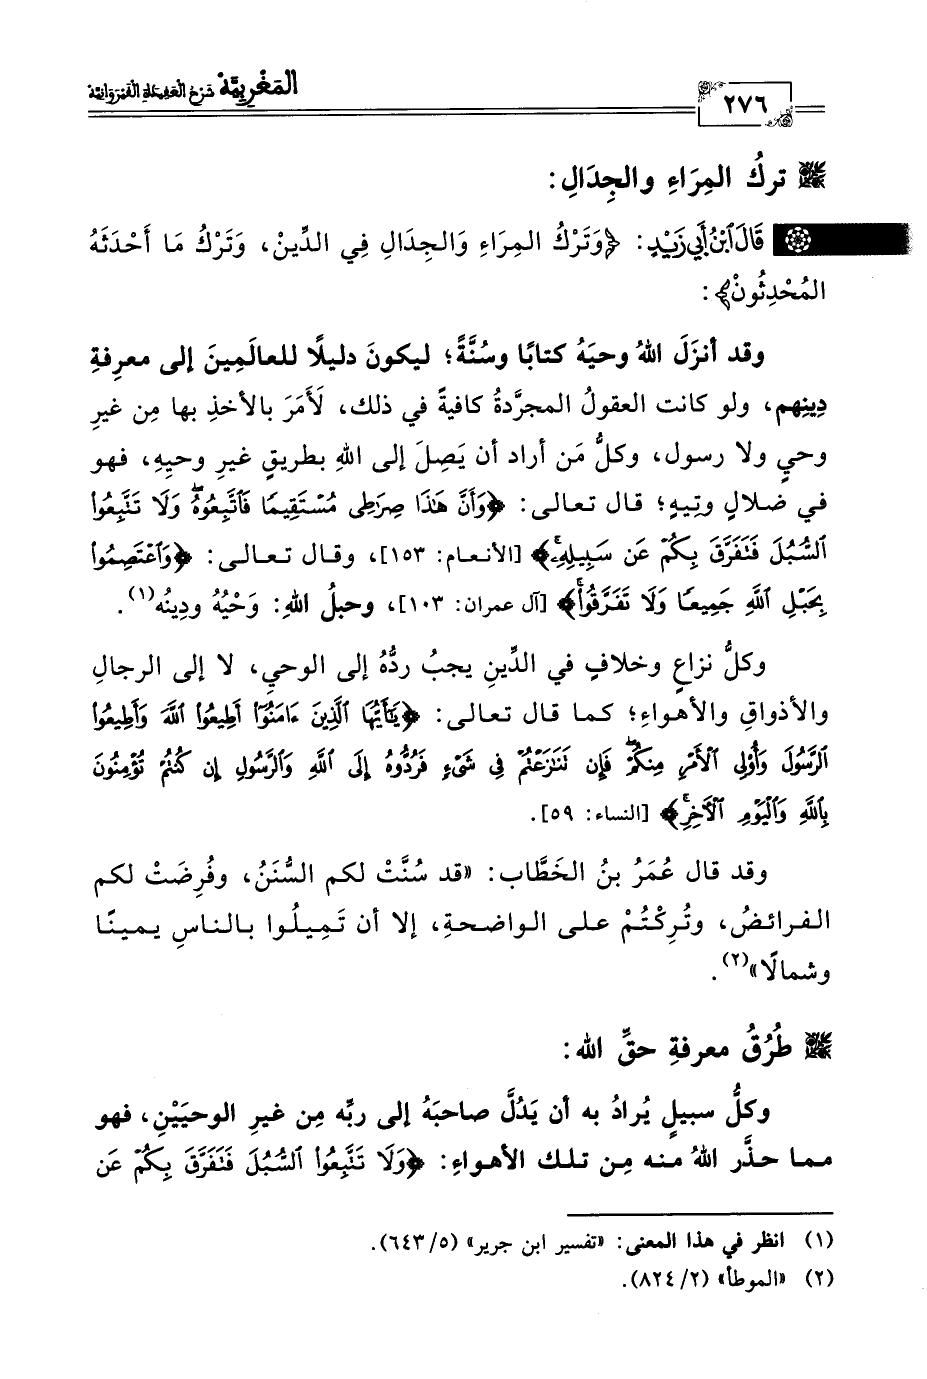 المَغْرِبِيَّة شَرْحُ العَقِيدَةِ القَيْرَوَانِيَّة
٢٧٦
تركُ المِرَاءِ والجِدَالِ:
قَالَ ٱبْنُ أَبِي زَيْدٍ: ﴿وَتَرْكُ المِرَاءِ وَالجِدَالِ فِي الدِّينِ، وَتَرْكُ مَا أَحْدَثَهُ
المُحْدِثُونْ﴾:
وقد أنزَلَ اللهُ وحيَهُ كتابًا وسُنَّةً؛ ليكونَ دليلًا للعالَمِينَ إلى معرفةِ
دِينِهم، ولو كانت العقولُ المجرَّدةُ كافيةً في ذلك، لَأَمَرَ بالأخذِ بها مِن غيرِ
وحيٍ ولا رسول، وكلُّ مَن أراد أن يَصِلَ إلى اللهِ بطريقٍ غيرِ وحيِهِ، فهو
في ضلالٍ وتِيهٍ؛ قال تعالى: ﴿وَأَنَّ هَٰذَا صِرَٰطِى مُسْتَقِيمًا فَٱتَّبِعُوهُ ۖ وَلَا تَتَّبِعُوا۟
ٱلسُّبُلَ فَتَفَرَّقَ بِكُمْ عَن سَبِيلِهِۦ ۚ﴾ [الأنعام: ١٥٣]، وقال تعالى: ﴿وَٱعْتَصِمُوا۟
بِحَبْلِ ٱللَّهِ جَمِيعًا وَلَا تَفَرَّقُوا۟ ۚ﴾ [آل عمران: ١٠٣]، وحبلُ اللهِ: وَحْيُهُ ودِينُه(١).
وكلُّ نزاعٍ وخلافٍ في الدِّينِ يجبُ ردُّهُ إلى الوحيِ، لا إلى الرجالِ
والأذواقِ والأهواءِ؛ كما قال تعالى: ﴿يَٰٓأَيُّهَا ٱلَّذِينَ ءَامَنُوٓا۟ أَطِيعُوا۟ ٱللَّهَ وَأَطِيعُوا۟
ٱلرَّسُولَ وَأُو۟لِى ٱلْأَمْرِ مِنكُمْ ۖ فَإِن تَنَٰزَعْتُمْ فِى شَىْءٍ فَرُدُّوهُ إِلَى ٱللَّهِ وَٱلرَّسُولِ إِن كُنتُمْ تُؤْمِنُونَ
بِٱللَّهِ وَٱلْيَوْمِ ٱلْءَاخِرِ ۚ﴾ [النساء: ٥٩].
وقد قال عُمَرُ بنُ الخَطَّاب: «قد سُنَّتْ لكم السُّنَنُ، وفُرِضَتْ لكم
الفرائضُ، وتُرِكْتُمْ على الواضحةِ، إلا أن تَمِيلُوا بالناسِ يمينًا
وشمالًا»(٢).
طُرُقُ معرفةِ حقِّ الله:
وكلُّ سبيلٍ يُرادُ به أن يَدُلَّ صاحبَهُ إلى ربِّه مِن غيرِ الوحيَيْنِ، فهو
مما حذَّر اللهُ منه مِن تلك الأهواءِ: ﴿وَلَا تَتَّبِعُوا۟ ٱلسُّبُلَ فَتَفَرَّقَ بِكُمْ عَن
(١) انظر في هذا المعنى: «تفسير ابن جرير» (٥/ ٦٤٣).
(٢) «الموطأ» (٢/ ٨٢٤).